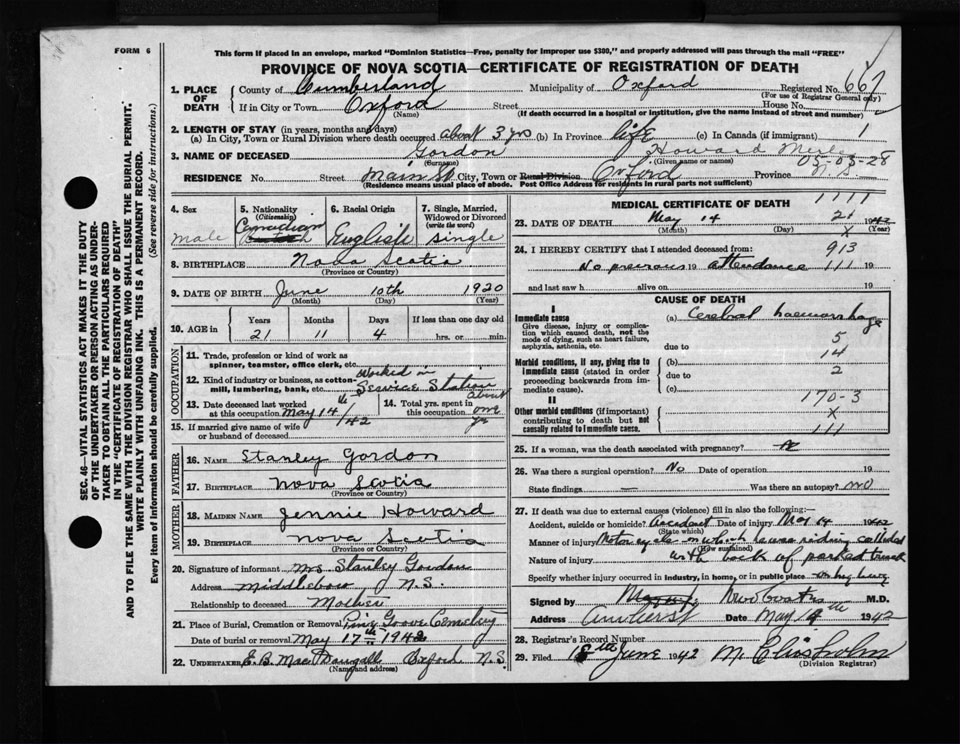 FORM 6
This form if placed in an envelope, marked "Dominion Statistics—Free, penalty for improper use $300," and properly addressed will pass through the mail "FREE"
PROVINCE OF NOVA SCOTIA—CERTIFICATE OF REGISTRATION OF DEATH
SEC. 46—VITAL STATISTICS ACT MAKES IT THE DUTY
OF THE UNDERTAKER OR PERSON ACTING AS UNDER-
TAKER TO OBTAIN ALL THE PARTICULARS REQUIRED
IN THE "CERTIFICATE OF REGISTRATION OF DEATH"
AND TO FILE THE SAME WITH THE DIVISION REGISTRAR WHO SHALL ISSUE THE BURIAL PERMIT.
WRITE PLAINLY WITH UNFADING INK. THIS IS A PERMANENT RECORD.
Every item of information should be carefully supplied. (See reverse side for instructions.)
1. PLACE OF DEATH
County of Cumberland Municipality of Oxford Registered No. 667
(For use of Registrar General only)
If in City or Town Oxford Street House No.
(Name) (If death occurred in a hospital or institution, give the name instead of street and number)
2. LENGTH OF STAY (in years, months and days)
(a) In City, Town or Rural Division where death occurred about 3 yrs (b) In Province life (c) In Canada (if immigrant) 1
3. NAME OF DECEASED Gordon Howard Merle
(Surname) (Given name or names) 05-03-28
RESIDENCE No. Street Main St. City, Town or Rural Division Oxford Province N.S.
(Residence means usual place of abode. Post Office Address for residents in rural parts not sufficient)
4. Sex male
5. Nationality (Citizenship) Canadian
6. Racial Origin English
7. Single, Married, Widowed or Divorced (write the word) single
8. BIRTHPLACE Nova Scotia
(Province or Country)
9. DATE OF BIRTH June 10th 1920
(Month) (Day) (Year)
10. AGE in Years Months Days If less than one day old
21 11 4 hrs. or min.
OCCUPATION
11. Trade, profession or kind of work as spinner, teamster, office clerk, etc.
12. Kind of industry or business, as cotton-mill, lumbering, bank, etc. Worked in Service Station
13. Date deceased last worked at this occupation May 14th/42
14. Total yrs. spent in this occupation about one yr
15. If married give name of wife or husband of deceased
FATHER
16. NAME Stanley Gordon
17. BIRTHPLACE Nova Scotia
(Province or Country)
MOTHER
18. MAIDEN NAME Jennie Howard
19. BIRTHPLACE Nova Scotia
(Province or Country)
20. Signature of informant Mrs Stanley Gordon
Address Middleboro N.S.
Relationship to deceased Mother
21. Place of Burial, Cremation or Removal Pine Grove Cemetery
Date of burial or removal May 17th 1942
22. UNDERTAKER E. B. MacDougall Oxford N.S.
(Name and address)
MEDICAL CERTIFICATE OF DEATH 1111
23. DATE OF DEATH May 14 21 1942
(Month) (Day) (Year)
X
24. I HEREBY CERTIFY that I attended deceased from: 913
No previous 19 attendance 111 19
and last saw h alive on 19
CAUSE OF DEATH
I
Immediate cause (a) Cerebral haemorrhage
Give disease, injury or complication which caused death, not the mode of dying, such as heart failure, asphyxia, asthenia, etc.
due to 5
14
Morbid conditions, if any, giving rise to immediate cause (stated in order proceeding backwards from immediate cause).
(b)
due to 2
(c)
II
170-3
Other morbid conditions (if important) contributing to death but not causally related to immediate cause.
X
111
25. If a woman, was the death associated with pregnancy?
26. Was there a surgical operation? No Date of operation 19
State findings — Was there an autopsy? no
27. If death was due to external causes (violence) fill in also the following:—
Accident, suicide or homicide? Accident Date of injury May 14 1942
(State which)
Manner of injury Motorcycle on which he was riding collided
(How sustained)
Nature of injury with back of parked truck
Specify whether injury occurred in industry, in home, or in public place
Signed by M.D.
Address Amherst Date May 1942
28. Registrar's Record Number
29. Filed 18th June 1942 M. Chisholm
(Division Registrar)